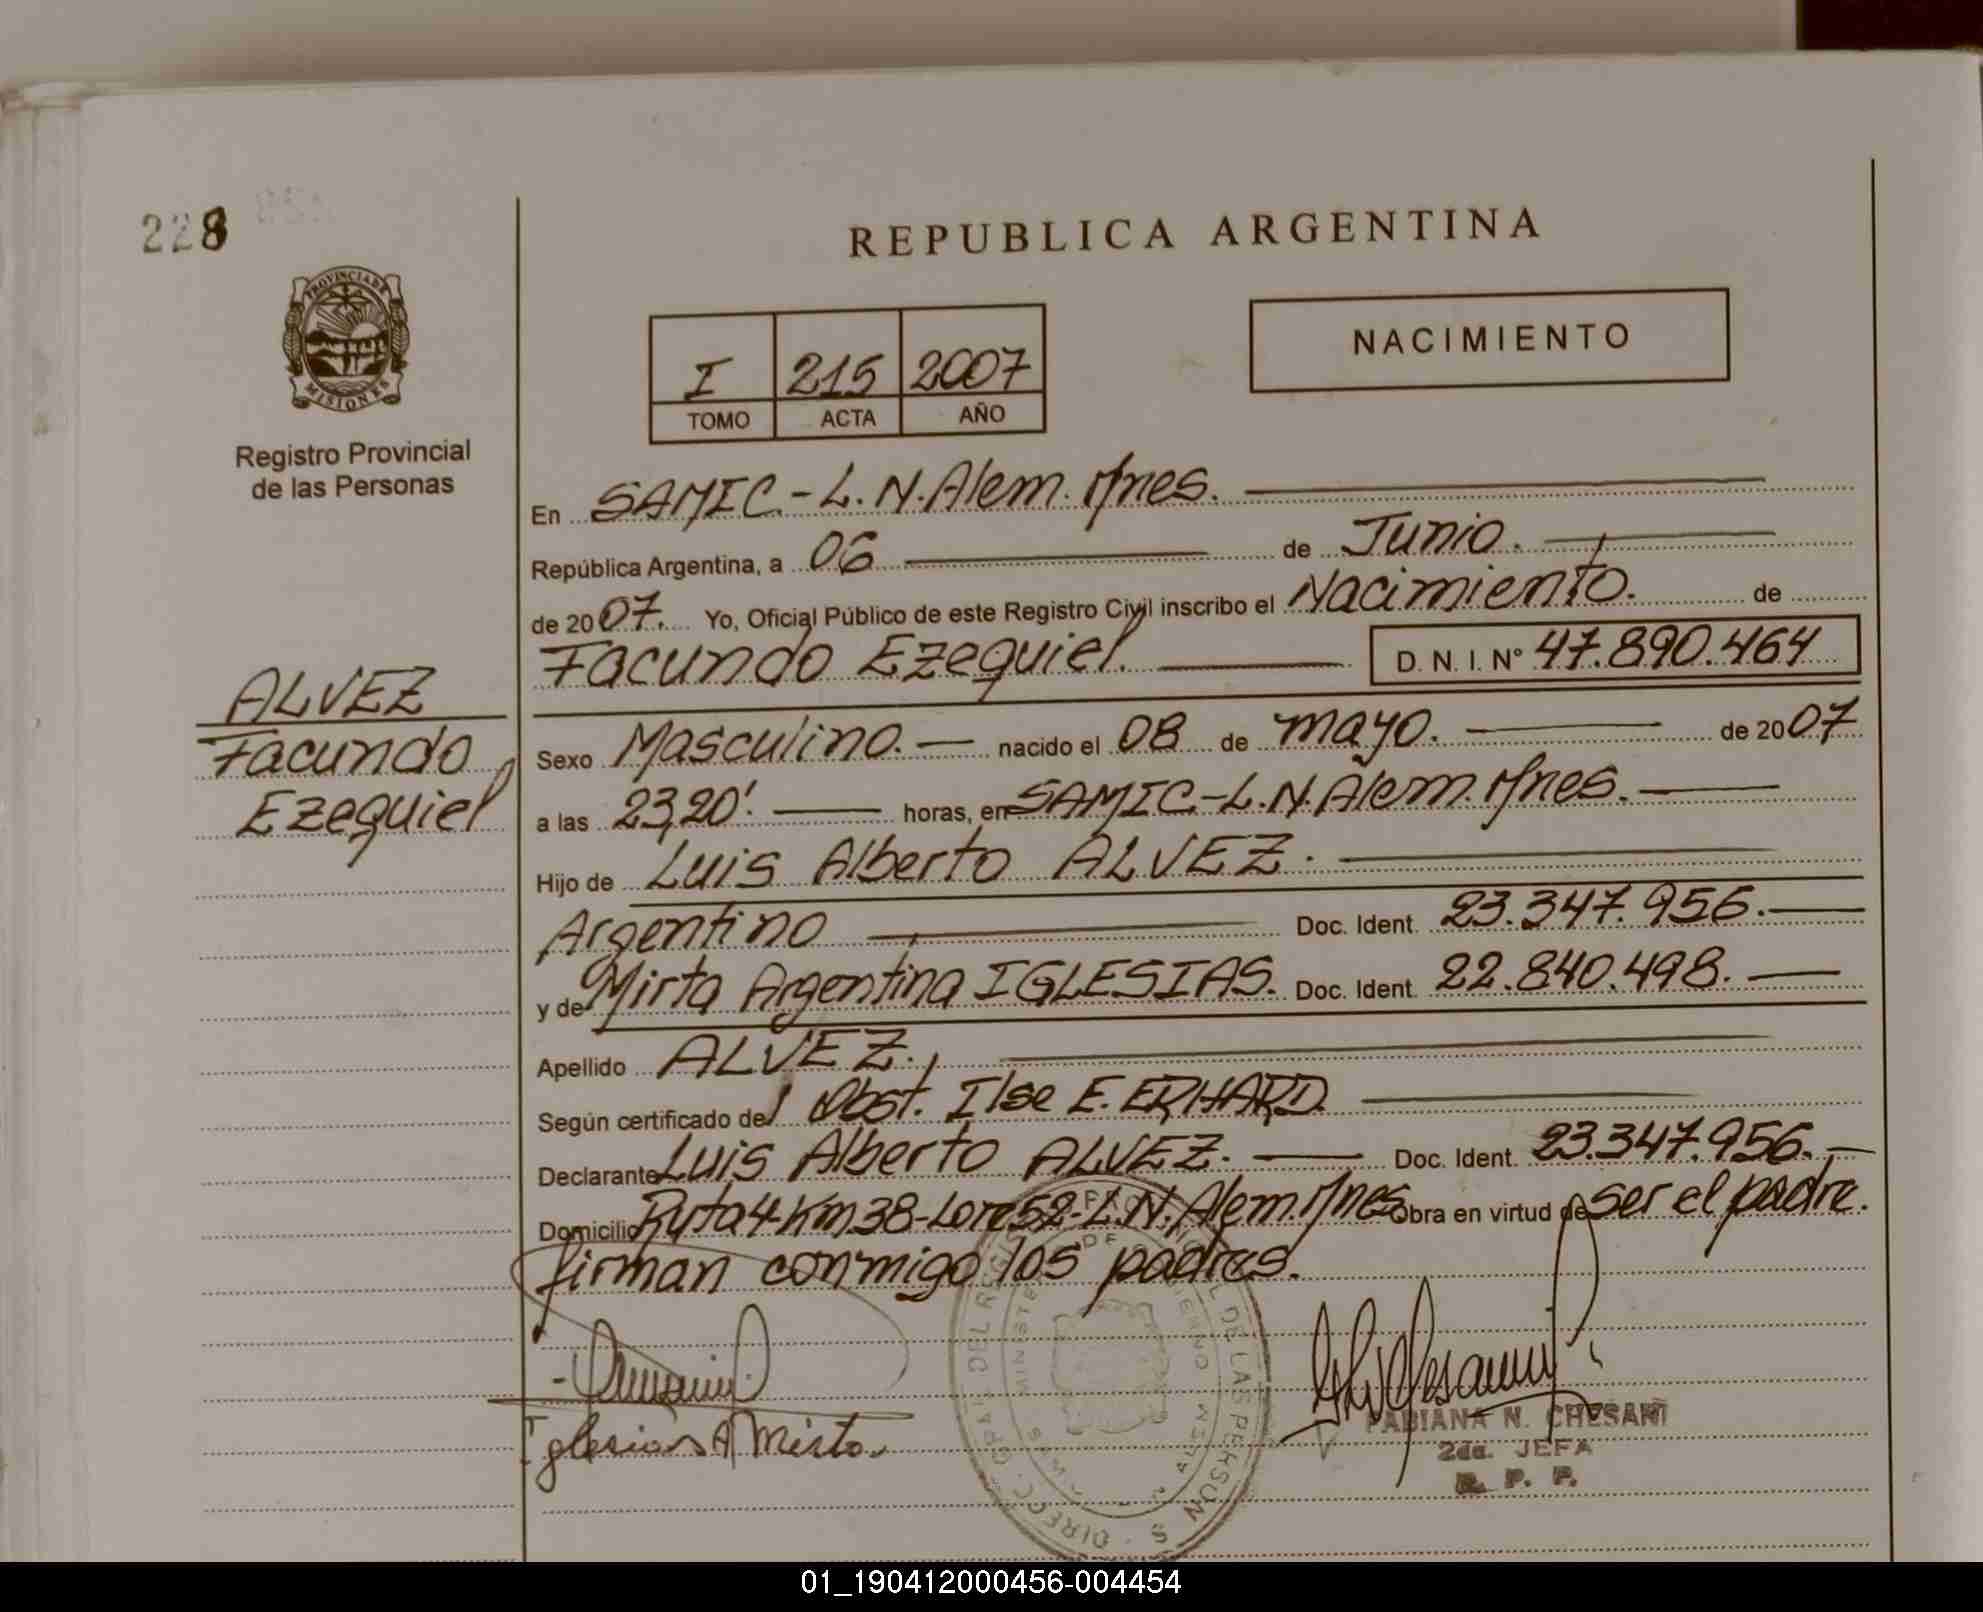 228
REPUBLICA ARGENTINA
PROVINCIA DE
MISIONES
Registro Provincial
de las Personas
I 215 2007
TOMO ACTA AÑO
NACIMIENTO
En SAMIC.-L.N.Alem.Mnes.
República Argentina, a 06 de Junio.
de 2007. Yo, Oficial Público de este Registro Civil inscribo el Nacimiento. de
Facundo Ezequiel. D. N. I. Nº 47.890.464
ALVEZ
Facundo
Ezequiel
Sexo Masculino. nacido el 08 de mayo. de 2007
a las 23,20'. horas, en SAMIC-L.N.Alem.Mnes.
Hijo de Luis Alberto ALVEZ.
Argentino Doc. Ident. 23.347.956.
y de Mirta Argentina IGLESIAS. Doc. Ident. 22.840.498.
Apellido ALVEZ.
Según certificado de Obst. Ilse E. ERHARD
Declarante Luis Alberto ALVEZ. Doc. Ident. 23.347.956.
Domicilio Ruta 4-Km38-Lote 52-L.N.Alem.Mnes. Obra en virtud de ser el padre.
firman conmigo los padres.
Iglesias A Mirta.
FABIANA N. CHESANI
2da. JEFA
R. P. P.
01_190412000456-004454